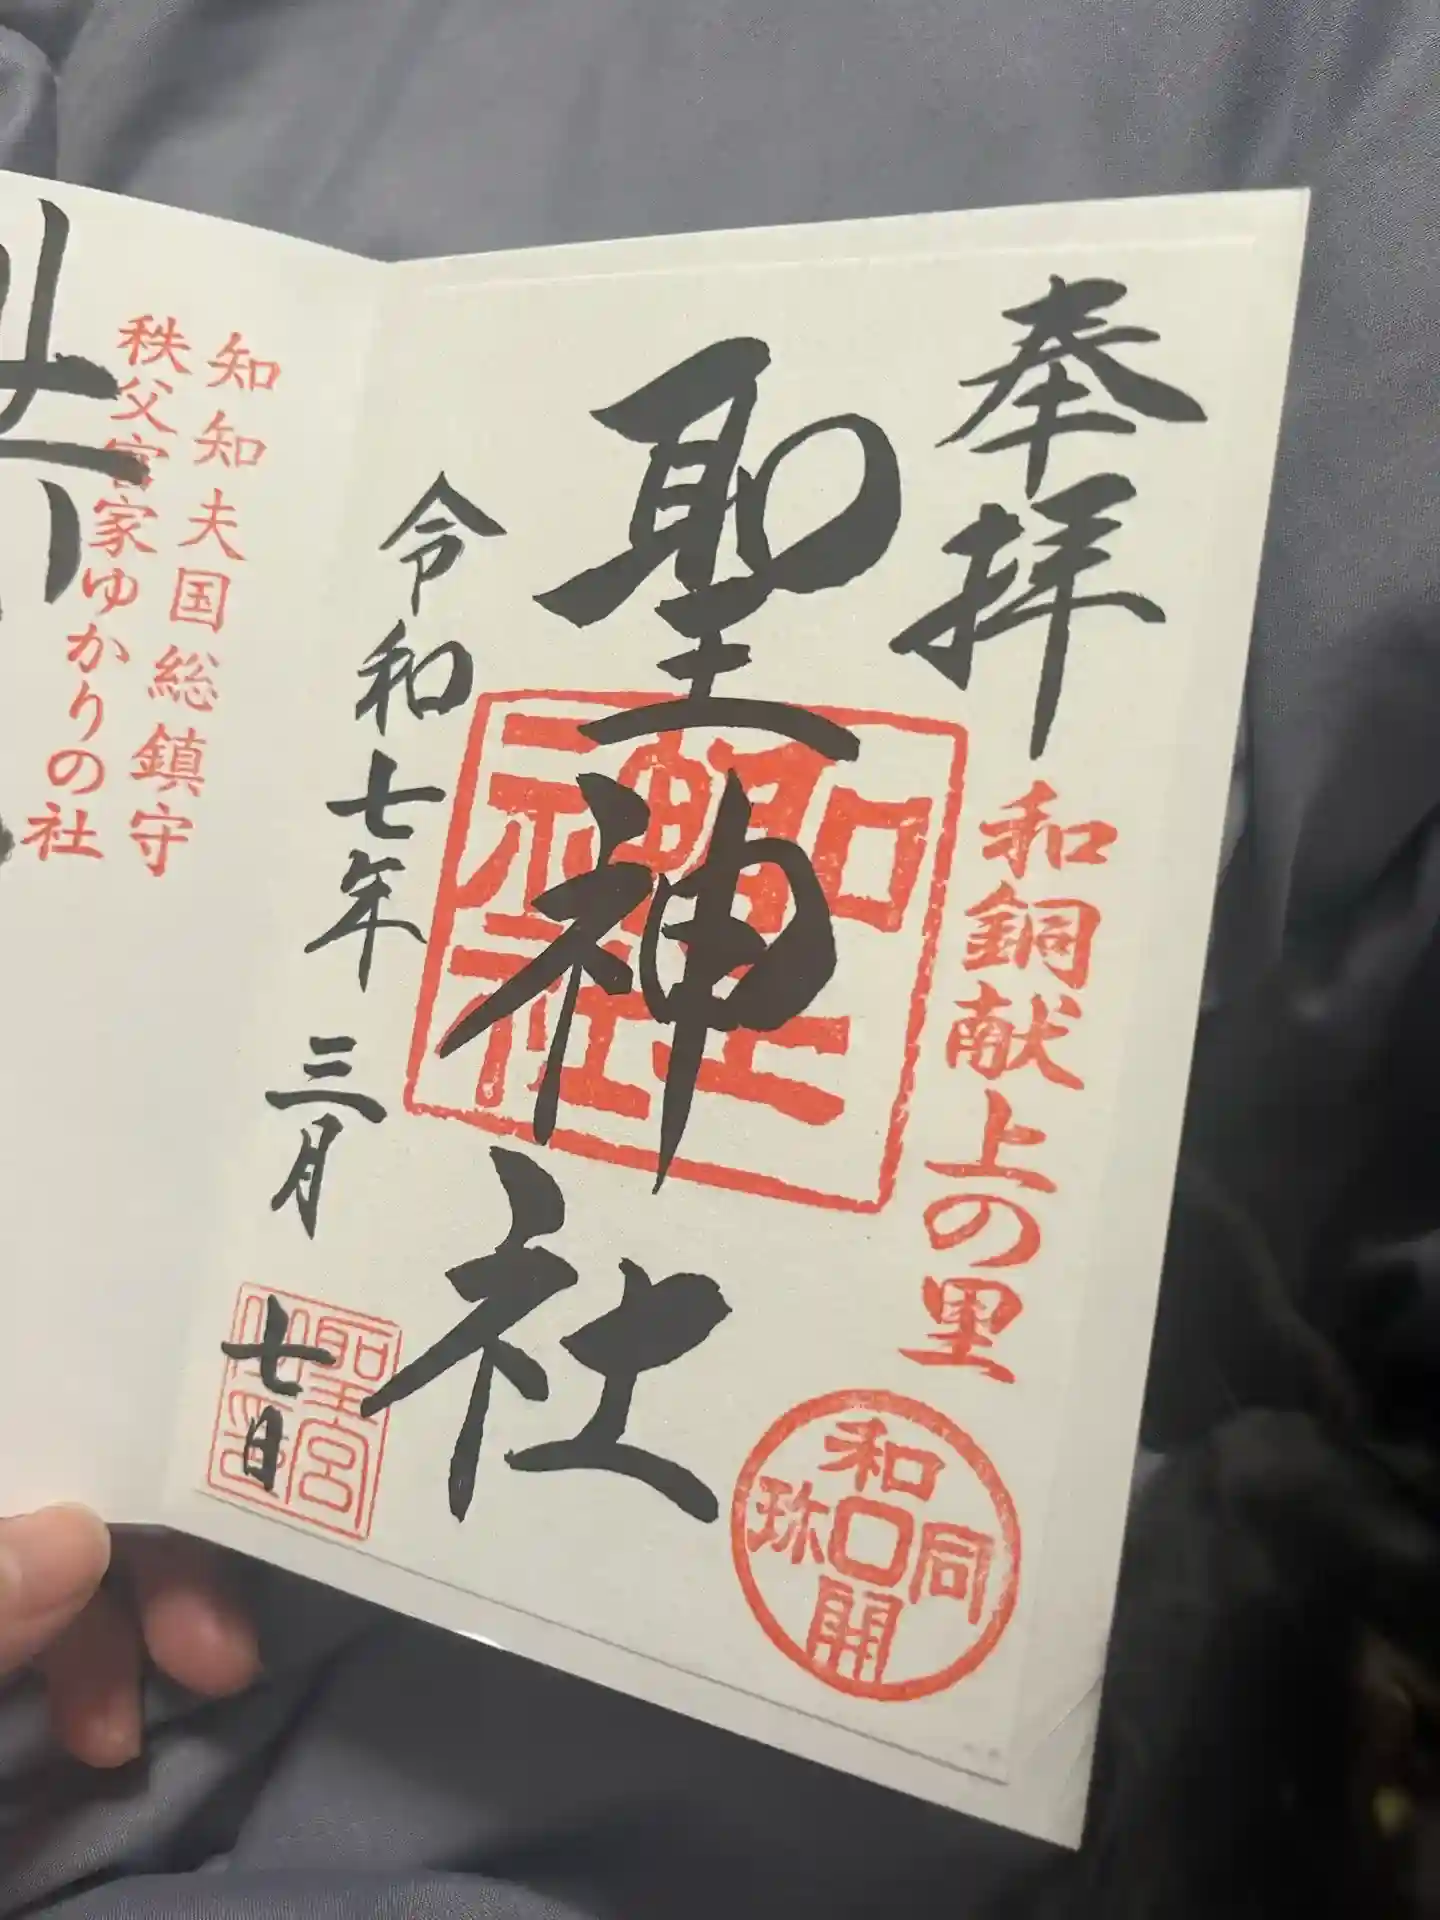 奉拝
和銅献上の里
和同開珎
聖神社
聖神社
令和七年三月七日
聖宮
知知夫国総鎮守
秩父宮家ゆかりの社